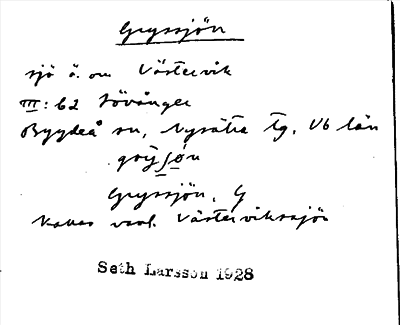 Gryssjön
sjö ö. om Västervik
III: 62 Lövånger
Bygdeå sn, Nysätra tg, Vb län
Gryssjön, G
kallas även Västervikssjön
Seth Larsson 1928